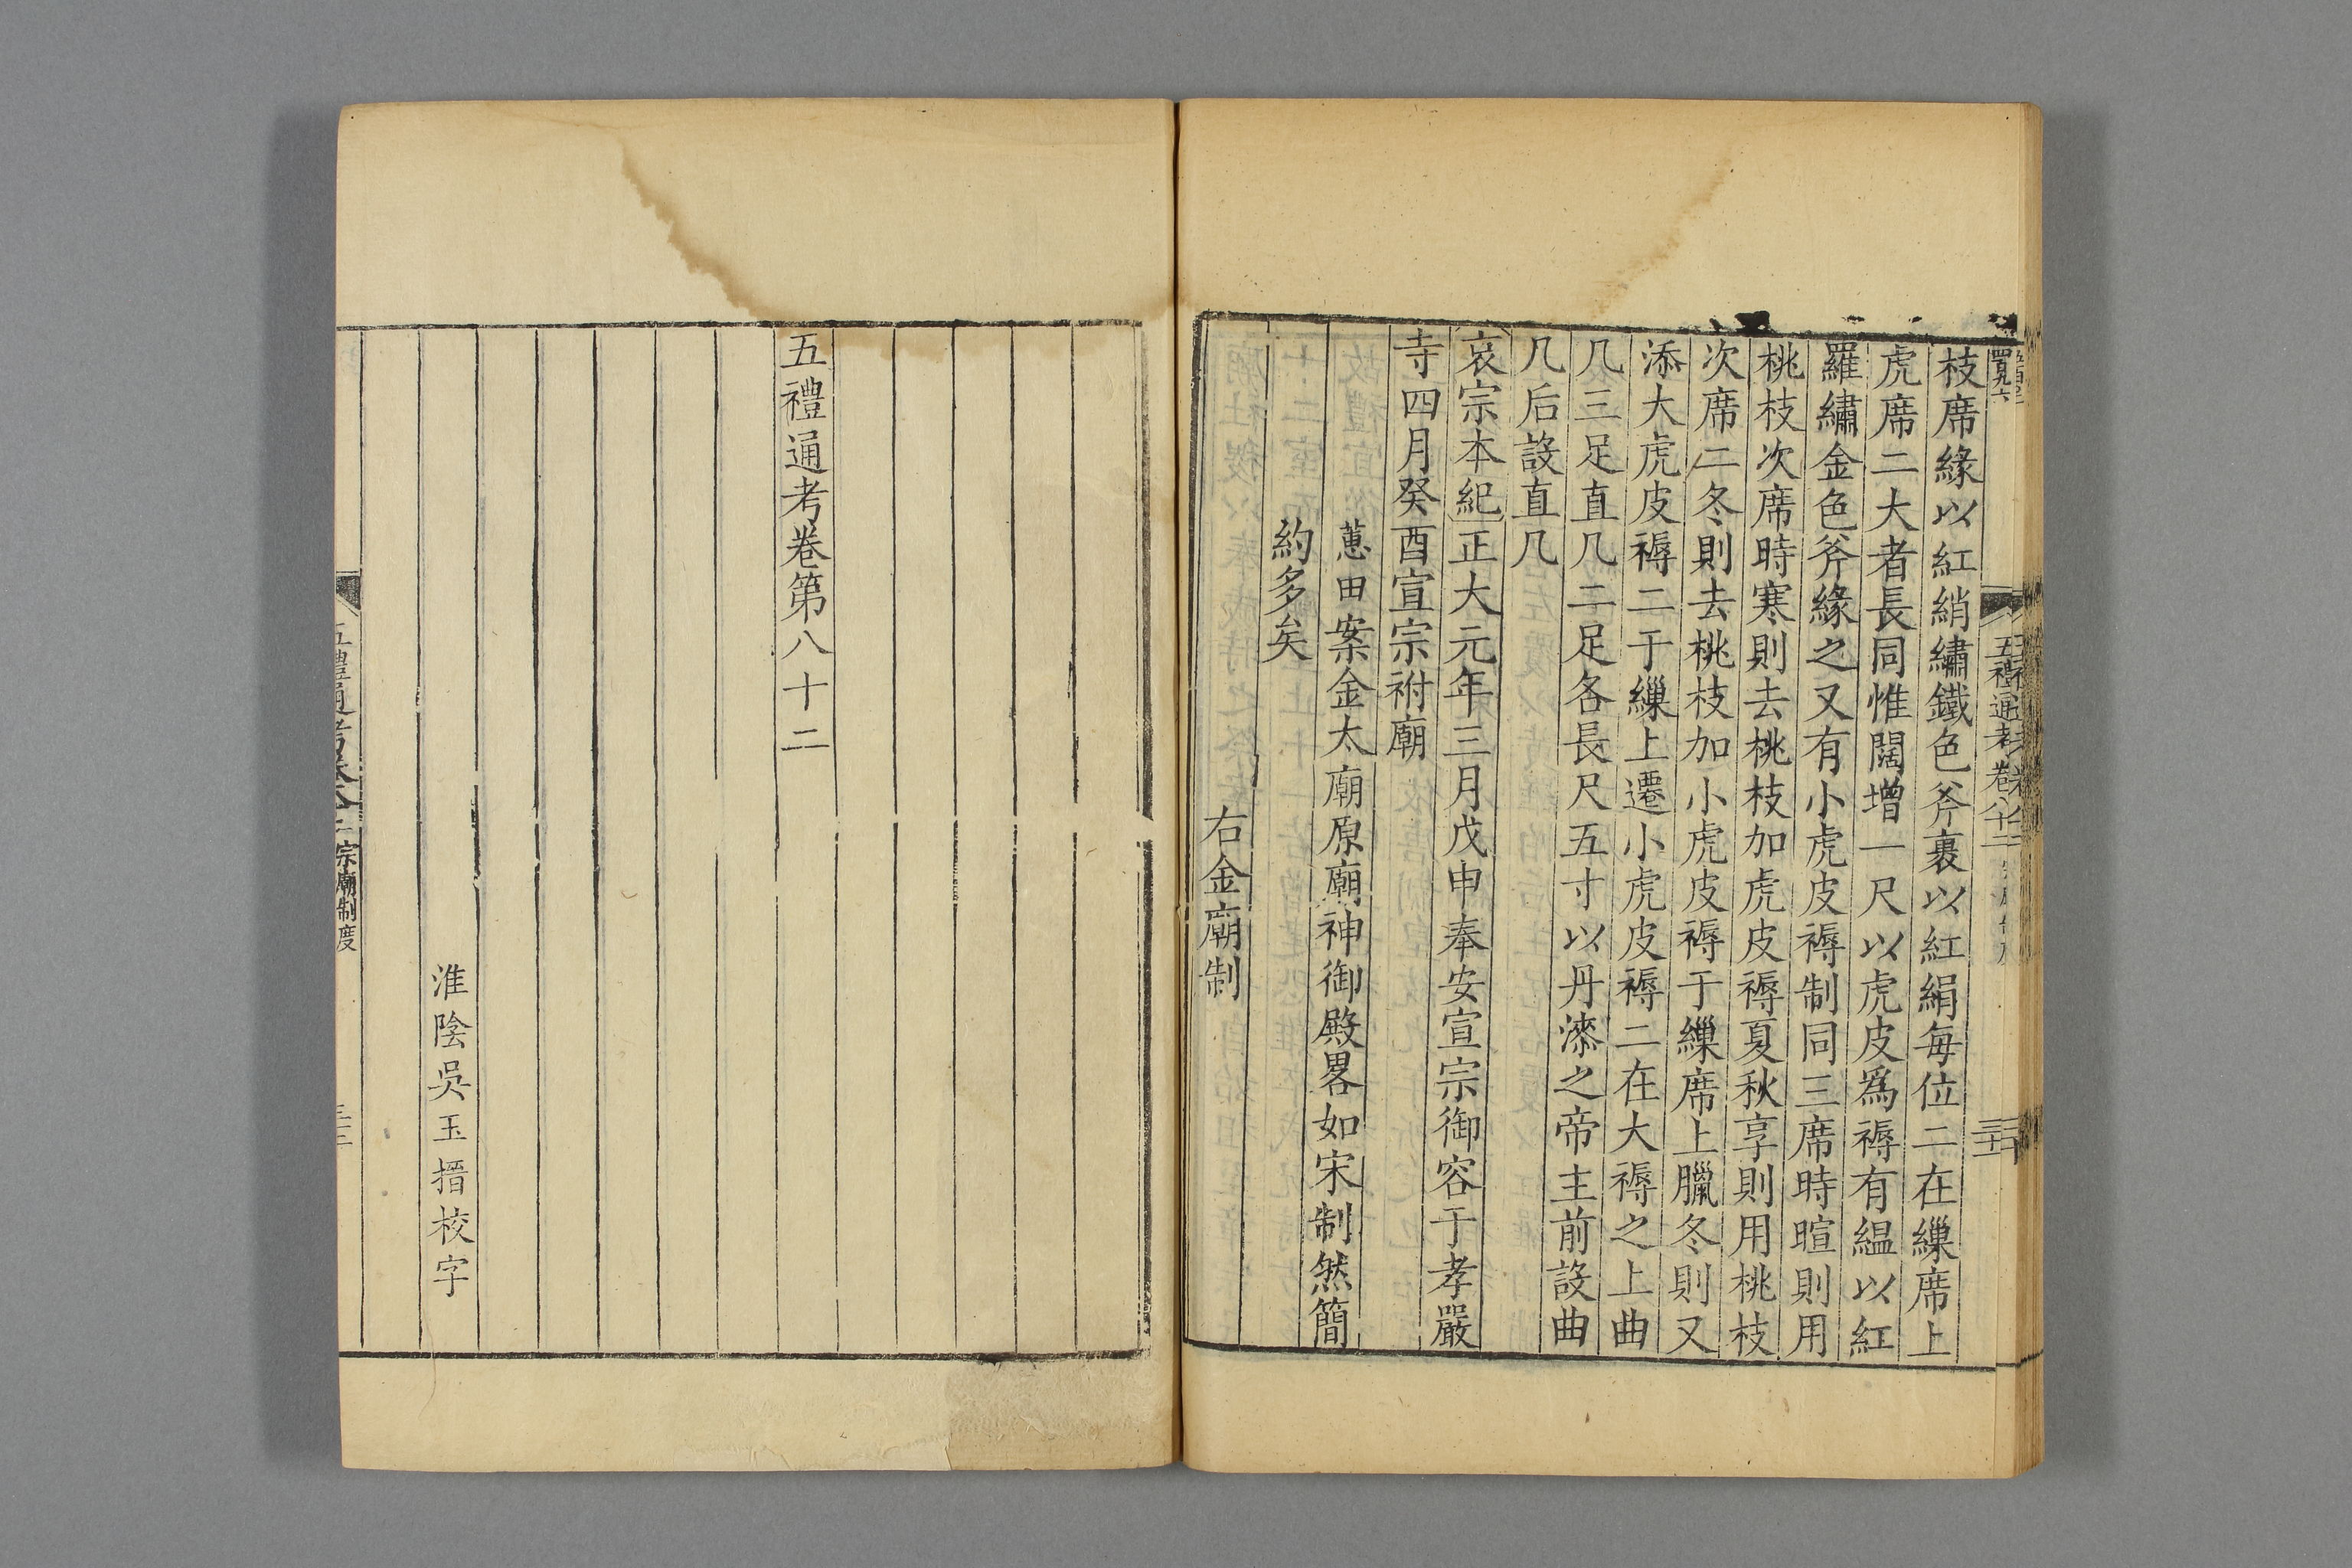 五禮通考卷八十二
枝席緣以紅綃繡鐵色斧裹以紅絹每位二在繅席上
虎席二大者長同惟闊增一尺以虎皮爲褥有縕以紅
羅繡金色斧緣之又有小虎皮褥制同三席時暄則用
桃枝次席時寒則去桃枝加虎皮褥夏秋享則用桃枝
次席二冬則去桃枝加小虎皮褥于繅席上臘冬則又
添大虎皮褥二于繅上遷小虎皮褥二在大褥之上曲
几三足直几二足各長尺五寸以丹漆之帝主前設曲
几后設直几
哀宗本紀正大元年三月戊申奉安宣宗御容于孝嚴
寺四月癸酉宣宗祔廟
蕙田案金太廟原廟神御殿畧如宋制然簡
約多矣
右金廟制
五禮通考卷第八十二
淮陰吳玉搢校字
五禮通考卷八十二 宗廟制度